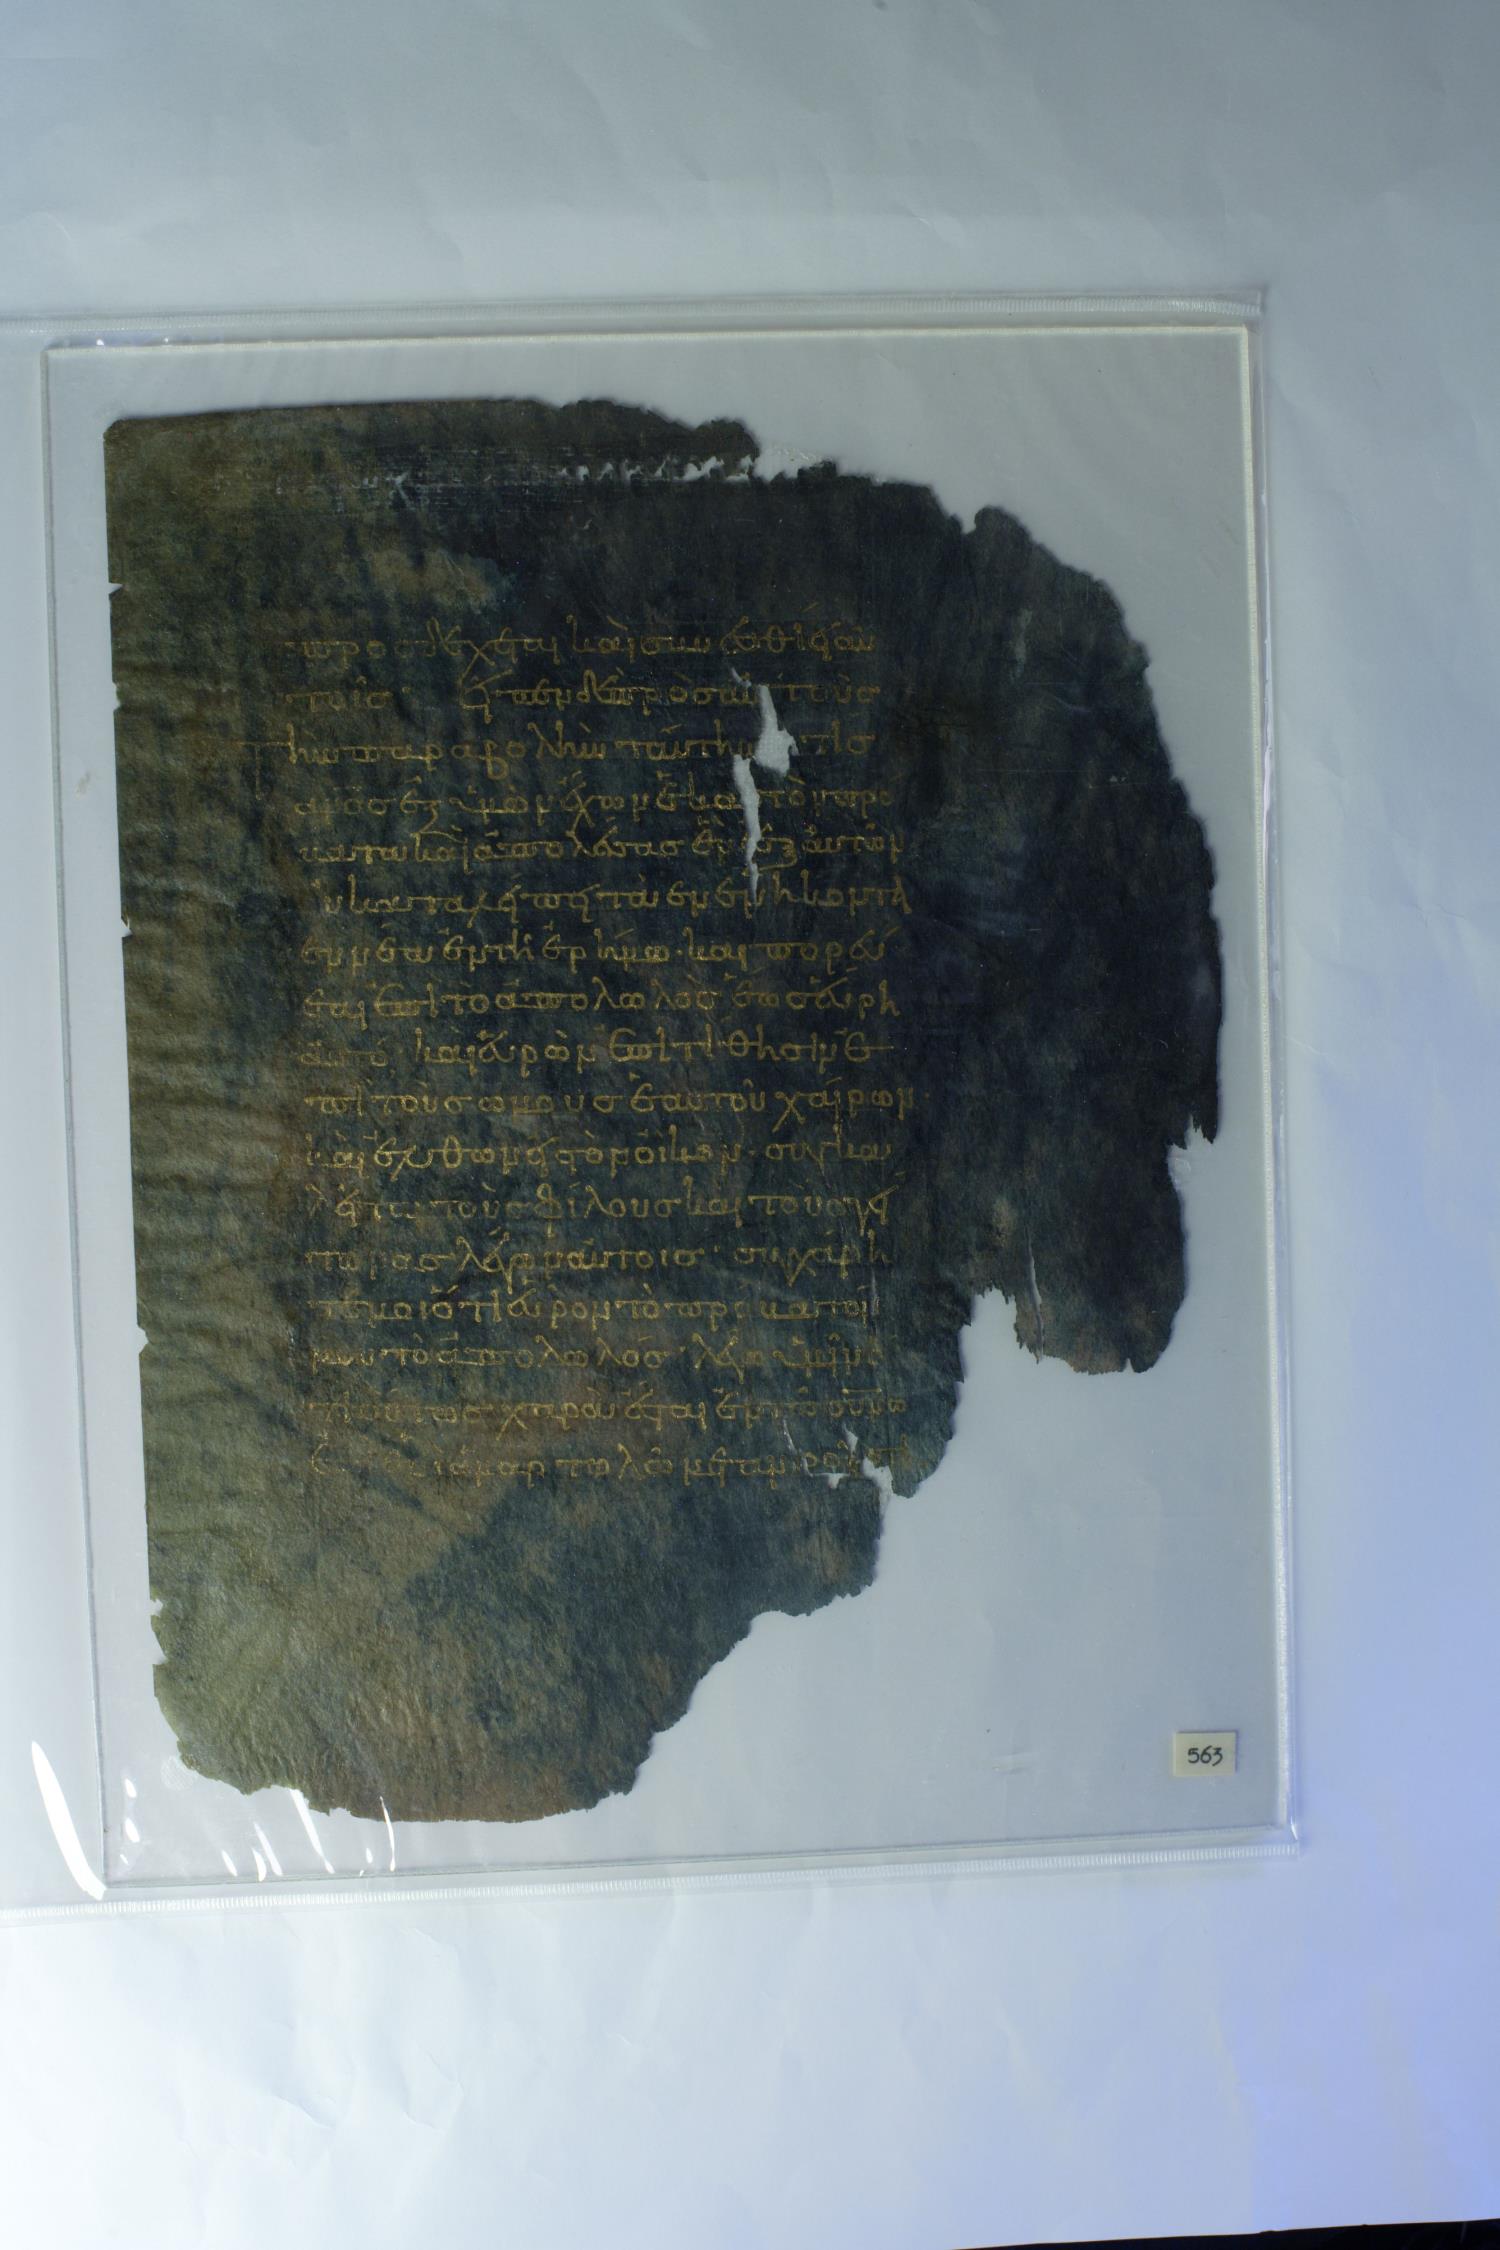 προσδέχεται καὶ συνεσθίει αὐ
τοῖς· εἶπεν δὲ πρὸς αὐτοὺς
τὴν παραβολὴν ταύτην τίς
ἄνος ἐξ ὑμῶν ἔχων ἑκατὸν πρό
βατα καὶ ἀπολέσας ἓν ἐξ αὐτῶν
οὐ καταλείπει τὰ ἐνενήκοντα
ἐννέα ἐν τῆ ἐρήμω· καὶ πορεύ
εται ἐπὶ τὸ ἀπολωλὸς ἕως εὕρη
αὐτό· καὶ εὑρὼν ἐπιτίθησιν ἐ
πὶ τοὺς ὤμους ἑαυτοῦ χαίρων·
καὶ ἐλθὼν εἰς τὸν οἶκον· συγκα
λεῖται τοὺς φίλους καὶ τοὺς γεί
τονας λέγων αὐτοῖς· συγχάρη
τέ μοι ὅτι εὗρον τὸ πρόβατόν
μου τὸ ἀπολωλός· λέγω ὑμῖν ὅ
τι οὕτως χαρὰ ἔσται ἐν τῶ οὐνω
ἐπὶ ἑνὶ ἁμαρτωλῶ μετανοοῦντι
563